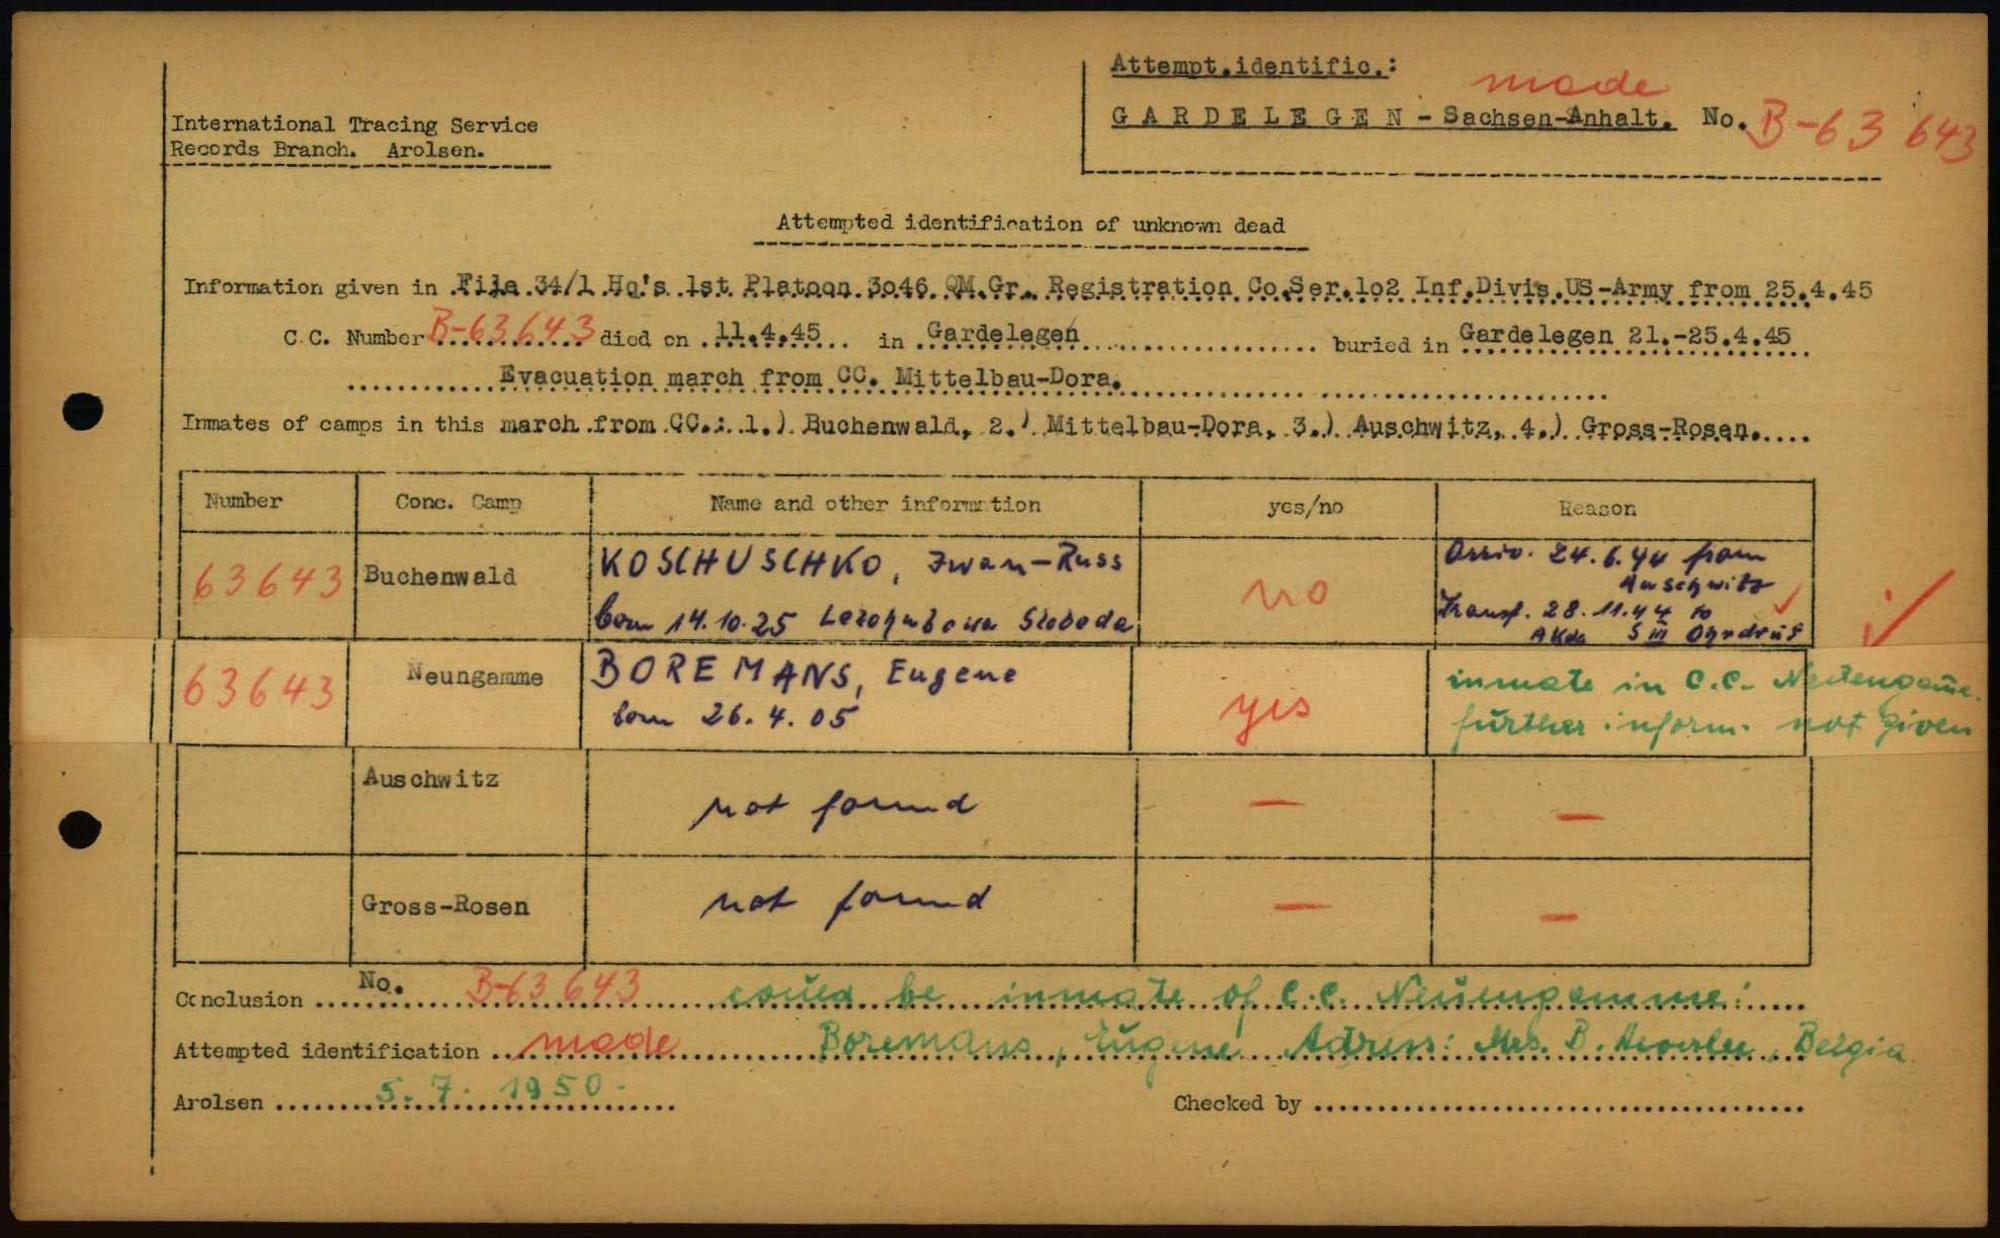 Attempt.identific.:
made
GARDELEGEN - Sachsen-Anhalt. No. B-63 643
International Tracing Service
Records Branch. Arolsen.
Attempted identification of unknown dead
Information given in File 34/1 Hq's 1st Platoon 3o46 QM.Gr. Registration Co.Ser.1o2 Inf.Divis.US-Army from 25.4.45
C.C. Number B-63643 died on 11.4.45 in Gardelegen buried in Gardelegen 21.-25.4.45
Evacuation march from CC. Mittelbau-Dora.
Inmates of camps in this march from CC.: 1.) Buchenwald, 2.) Mittelbau-Dora, 3.) Auschwitz, 4.) Gross-Rosen.
Number Conc. Camp Name and other information yes/no Reason
63643 Buchenwald KOSCHUSCHKO, Iwan-Russ no Arriv. 24.6.44 from
Auschwitz
born 14.10.25 Sloboda Transf. 28.11.44 to
AKdo S III Ohrdruf
63643 Neungamme BOREMANS, Eugene yes inmate in C.C. Neuengame.
born 26.4.05 further inform. not given
Auschwitz not found — —
Gross-Rosen not found — —
Conclusion No. B-63643 could be inmate of C.C. Neuengamme:
Attempted identification made Boremans, Eugene Adress: Mrs. B. Belgia
Arolsen 5.7.1950. Checked by